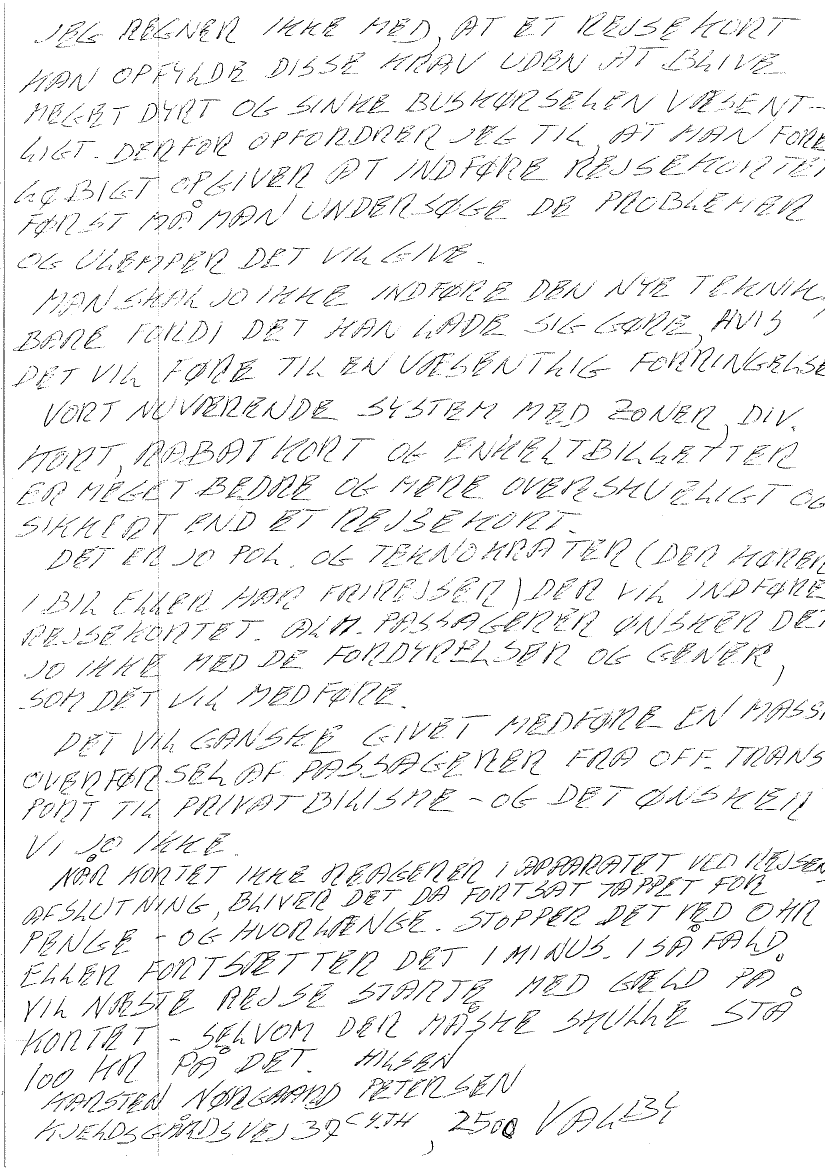 JEG REGNER IKKE MED, AT ET REJSEKORT
KAN OPFYLDE DISSE KRAV UDEN AT BLIVE
MEGET DYRT OG SINKE BUSKØRSELEN VÆSENT-
LIGT. DERFOR OPFORDRER JEG TIL, AT MAN FORE
LØBIGT OPGIVER AT INDFØRE REJSEKORTET
FØRST MÅ MAN UNDERSØGE DE PROBLEMER
OG ULEMPER DET VIL GIVE.
MAN SKAL JO IKKE INDFØRE DEN NYE TEKNIK,
BARE FORDI DET KAN LADE SIG GØRE, HVIS
DET VIL FØRE TIL EN VÆSENTLIG FORRINGELSE
VORT NUVÆRENDE SYSTEM MED ZONER, DIV.
KORT, RABATKORT OG ENKELTBILLETTER
ER MEGET BEDRE OG MERE OVERSKUELIGT OG
SIKKERT END ET REJSEKORT.
DET ER JO POL. OG TEKNOKRATER (DER KØRER
I BIL ELLER HAR FRIREJSER) DER VIL INDFØRE
REJSEKORTET. ALM. PASSAGERER ØNSKER DET
JO IKKE MED DE FORDYRELSER OG GENER,
SOM DET VIL MEDFØRE.
DET VIL GANSKE GIVET MEDFØRE EN MASSI
OVERFØRSEL AF PASSAGERER FRA OFF. TRANS
PORT TIL PRIVATBILISME - OG DET ØNSKER
VI JO IKKE.
NÅR KORTET IKKE REAGERER I APPARATET VED REJSEN
AFSLUTNING, BLIVER DET DA FORTSAT TAPPET FOR
PENGE - OG HVORLÆNGE. STOPPER DET VED 0 KR
ELLER FORTSÆTTER DET I MINUS. I SÅ FALD
VIL NÆSTE REJSE STARTE MED GÆLD PÅ
KORTET - SELVOM DER MÅSKE SKULLE STÅ
100 KR PÅ DET. HILSEN
KARSTEN NØRGAARD PETERSEN
KJELDSGÅRDSVEJ 37 C 4. TH, 2500 VALBY